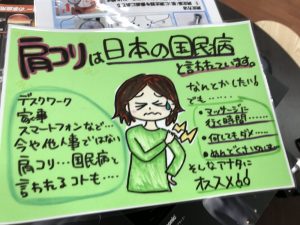 肩コリは日本の国民病
と言われています。
デスクワーク
家事
スマートフォンなど…
今や他人事ではない
肩コリ…国民病と
言われるコトも…
なんとかしたい!
でも……
・マッサージに
行く時間……
・何してもダメ…
・めんどくさいのは…
そんなアナタに
オススメ